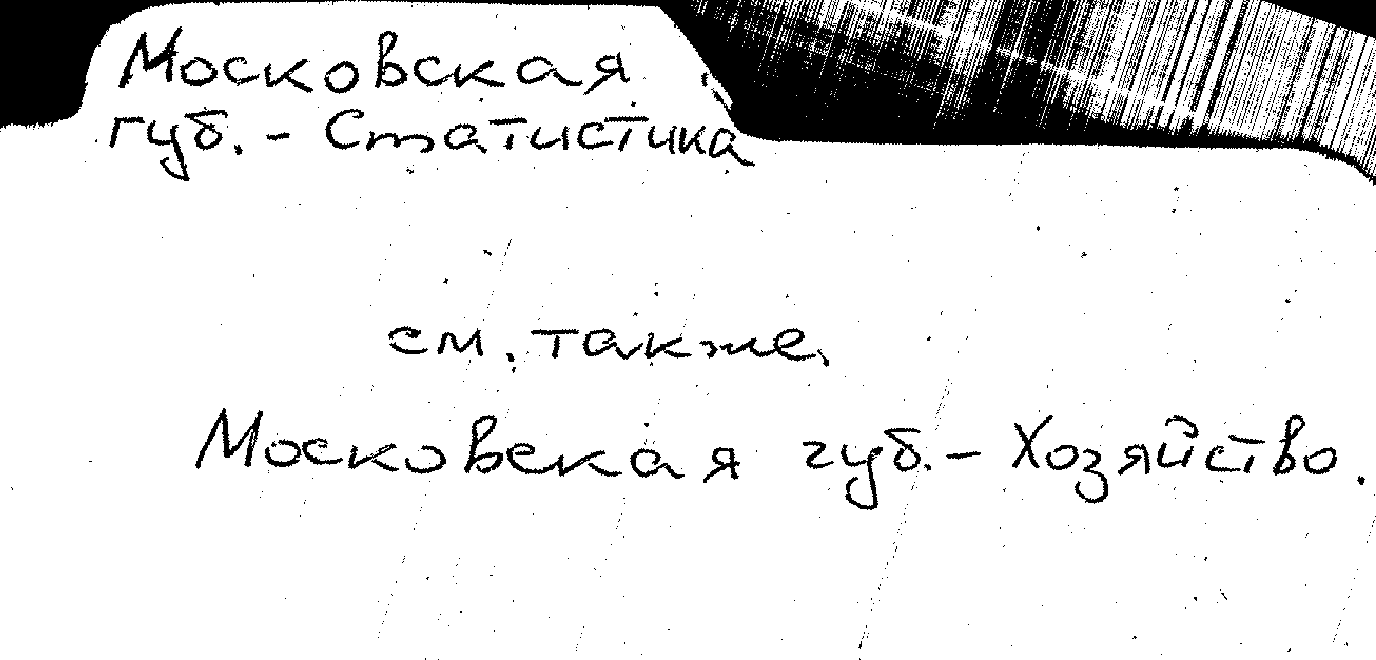 Московская
губ. - Статистика
см. также
Московская губ. - Хозяйство.